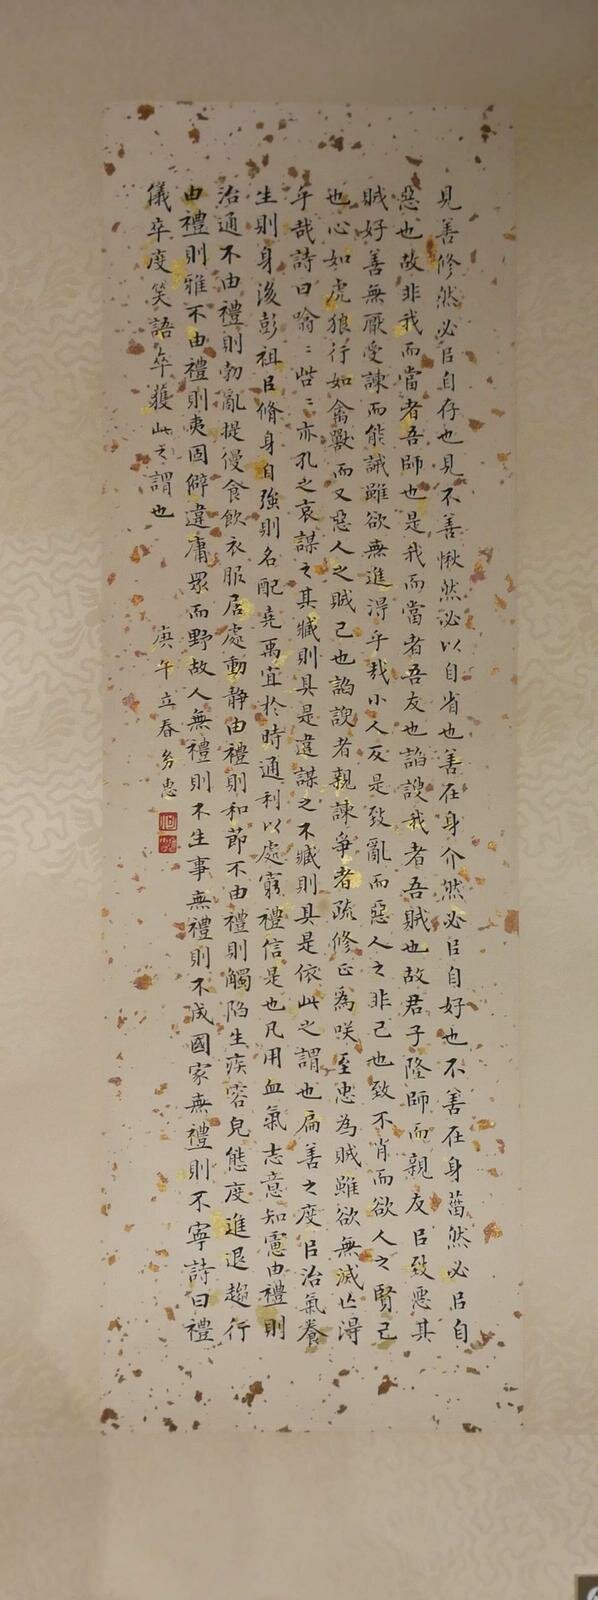 見善修然必㠯自存也見不善愀然必以自省也善在身介然必㠯自好也不善在身菑然必㠯自
惡也故非我而當者吾師也是我而當者吾友也諂諛我者吾賊也故君子隆師而親友㠯致惡其
賊好善無厭受諫而能誡雖欲無進得乎哉小人反是致亂而惡人之非己也致不肖而欲人之賢己
也心如虎狼行如禽獸而又惡人之賊己也諂諛者親諫爭者疏修正為咲至忠為賊雖欲無滅亡得
乎哉詩曰噏〻呰〻亦孔之哀謀之其臧則具是違謀之不臧則具是依此之謂也扁善之度㠯治氣養
生則身後彭祖㠯脩身自強則名配堯禹宜於時通利以處窮禮信是也凡用血氣志意知慮由禮則
治通不由禮則勃亂提僈食飲衣服居處動靜由禮則和節不由禮則觸陷生疾容皃態度進退趨行
由禮則雅不由禮則夷固僻違庸眾而野故人無禮則不生事無禮則不成國家無禮則不寧詩曰禮
儀卒度笑語卒獲此之謂也
庚午立春 惠